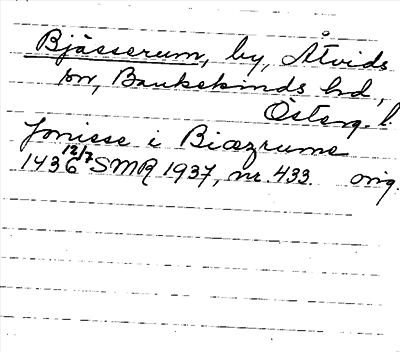 Bjässerum, by, Åtvids
sn, Bankekinds hd,
Österg. l.
Jonisse i Biæzrume
1436 12/7 SMR 1937, nr. 433. orig.